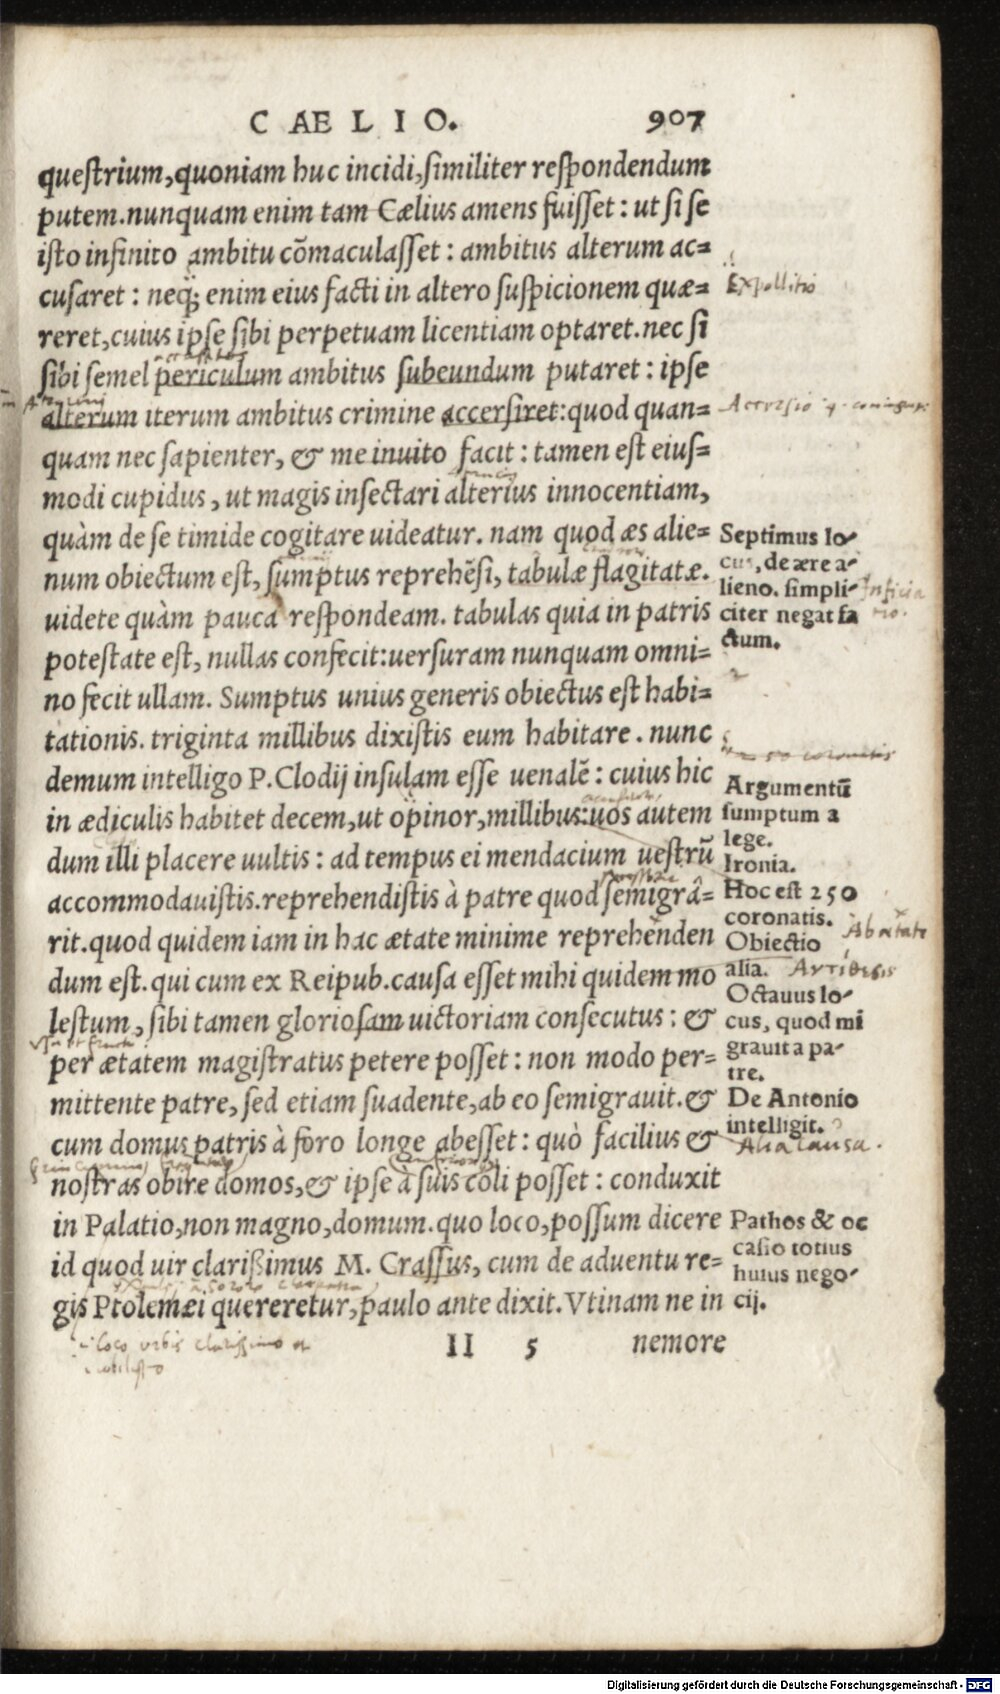 C AE L I O. 907
questrium, quoniam huc incidi, similiter respondendum
putem. nunquam enim tam Cælius amens fuisset: ut si se
isto infinito ambitu cõmaculasset: ambitus alterum ac=
cusaret: neq; enim eius facti in altero suspicionem quæ=
reret, cuius ipse sibi perpetuam licentiam optaret. nec si
sibi semel periculum ambitus subeundum putaret: ipse
alterum iterum ambitus crimine accersiret: quod quan=
quam nec sapienter, & me inuito facit: tamen est eius=
modi cupidus, ut magis insectari alterius innocentiam,
quàm de se timide cogitare uideatur. nam quod æs alie=
num obiectum est, sumptus reprehẽsi, tabulæ flagitatæ.
uidete quàm pauca respondeam. tabulas quia in patris
potestate est, nullas confecit: uersuram nunquam omni=
no fecit ullam. Sumptus unius generis obiectus est habi=
tationis. triginta millibus dixistis eum habitare. nunc
demum intelligo P. Clodij insulam esse uenalẽ: cuius hic
in ædiculis habitet decem, ut opinor, millibus: uos autem
dum illi placere uultis: ad tempus ei mendacium uestrũ
accommodauistis. reprehendistis à patre quod semigrâ=
rit. quod quidem iam in hac ætate minime reprehenden
dum est. qui cum ex Reipub. causa esset mihi quidem mo
lestum, sibi tamen gloriosam uictoriam consecutus: &
per ætatem magistratus petere posset: non modo per=
mittente patre, sed etiam suadente, ab eo semigrauit. &
cum domus patris à foro longe abesset: quò facilius &
nostras obire domos, & ipse à suis coli posset: conduxit
in Palatio, non magno, domum. quo loco, possum dicere
id quod uir clarißimus M. Crassus, cum de aduentu re=
gis Ptolemæi quereretur, paulo ante dixit. Vtinam ne in
II 5 nemore
Expollitio
Septimus lo-
cus, de ære a-
lieno. simpli-
citer negat fa
ctum.
Inficia
tio.
Argumentũ
sumptum a
lege.
Ironia.
Hoc est 250
coronatis.
Obiectio
alia.
Ab ætate
Octauus lo-
cus, quod mi
grauit a pa-
tre.
De Antonio
intelligit.
Alia causa.
Pathos & oc
casio totius
huius nego-
cij.
Digitalisierung gefördert durch die Deutsche Forschungsgemeinschaft - DFG